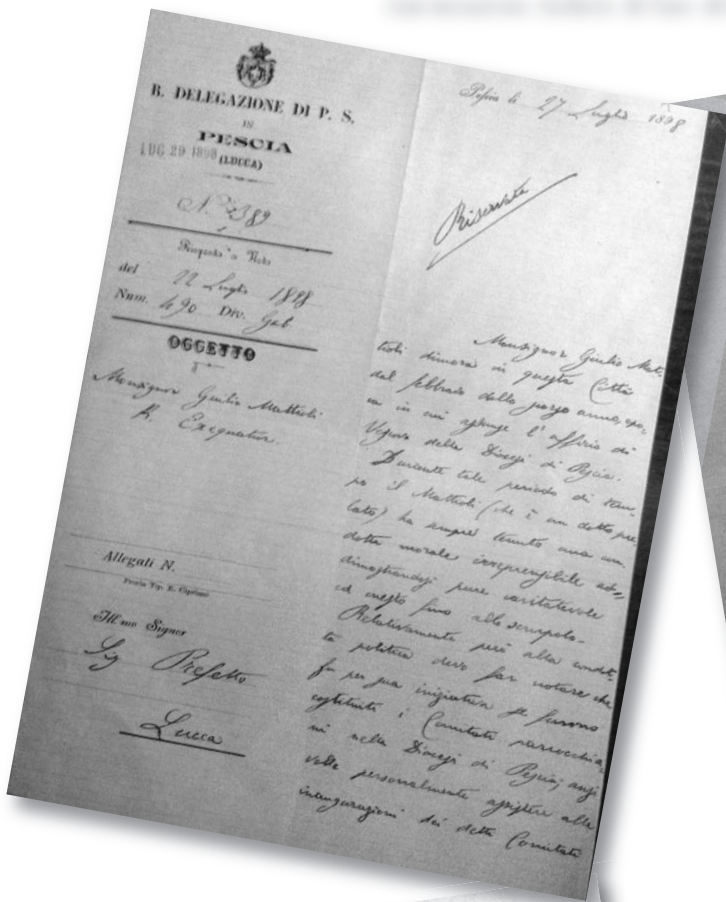 R. DELEGAZIONE DI P. S.
IN
PESCIA
LUG 29 1898 (LUCCA)
N. 389
Risposta a Nota
del 22 Luglio 1898
Num. 490 Div. Gab
OGGETTO
Monsignor Giulio Mattioli
R. Exequatur.
Allegati N.
Pescia Tip. E. Cipriani
Ill.mo Signor
Sig Prefetto
Lucca
Pescia li 27 Luglio 1898
Riservata
Monsignor Giulio Mat-
tioli dimora in questa Città
dal febbraio dello scorso anno, epo-
ca in cui assunse l'ufficio di
Vescovo della Diocesi di Pescia.
Durante tale periodo di tem-
po il Mattioli (che è un dotto pre
lato) ha sempre tenuto una con
dotta morale irreprensibile ad-
dimostrandosi pure caritatevole
ed onesto fino allo scrupolo.
Relativamente però alla condot-
ta politica devo far notare che
fu per sua iniziativa se furono
costituiti i Comitati parrocchia-
li nella Diocesi di Pescia; anzi
volle personalmente assistere alle
inaugurazioni dei detti Comitati